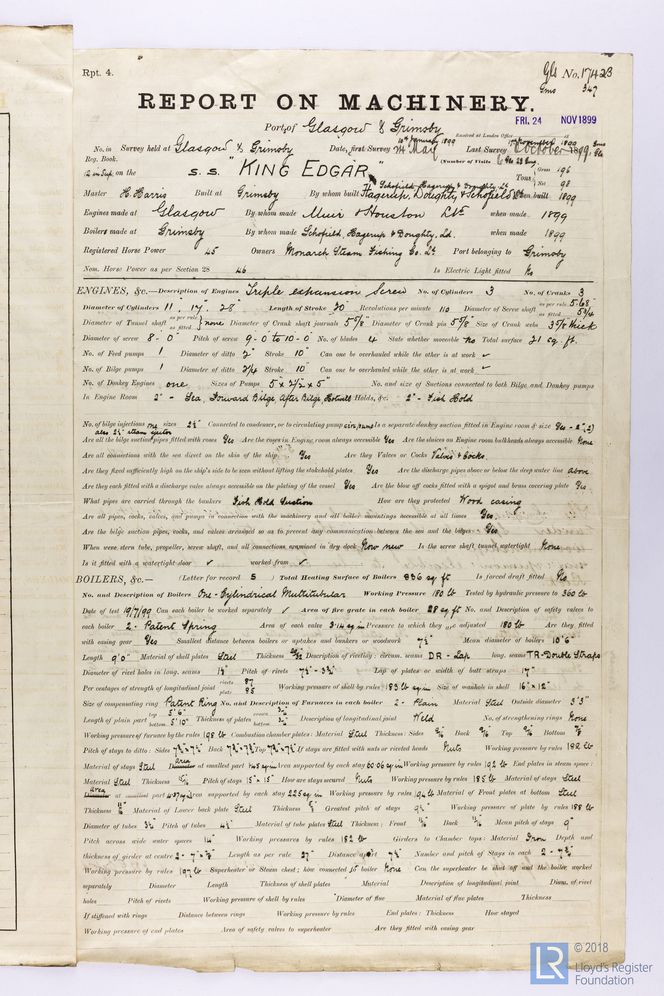 Rpt. 4.
Gls No. 17423
Gms 347
REPORT ON MACHINERY.
Port of Glasgow & Grimsby
FRI. 24 NOV 1899
Received at London Office
No. in Survey held at Glasgow & Grimsby Date, first Survey Last Survey 1899
Reg. Book.
(Number of Visits
on the S.S. "KING EDGAR" Tons Gross 196
Net 98
Master H. Harris Built at Grimsby By whom built Schofield, Hagerup & Doughty Ld. When built 1899
Engines made at Glasgow By whom made Muir & Houston Ltd. when made 1899
Boilers made at Grimsby By whom made Schofield, Hagerup & Doughty, Ld. when made 1899
Registered Horse Power 45 Owners Monarch Steam Fishing Co. Ld. Port belonging to Grimsby
Nom. Horse Power as per Section 28 46 Is Electric Light fitted No
ENGINES, &c.—Description of Engines Triple expansion Screw No. of Cylinders 3 No. of Cranks 3
Diameter of Cylinders 11", 17", 28" Length of Stroke 20" Revolutions per minute 110 Diameter of Screw shaft as per rule 5.68 as fitted 5 3/4
Diameter of Tunnel shaft as per rule as fitted none Diameter of Crank shaft journals 5 5/8" Diameter of Crank pin 5 5/8" Size of Crank webs 3 5/8 thick
Diameter of screw 8'-0" Pitch of screw 9-0 to 10-0 No. of blades 4 State whether moveable No Total surface 21 sq. ft.
No. of Feed pumps 1 Diameter of ditto 2" Stroke 10" Can one be overhauled while the other is at work ✓
No. of Bilge pumps 1 Diameter of ditto 2 1/4 Stroke 10" Can one be overhauled while the other is at work ✓
No. of Donkey Engines one Sizes of Pumps 5" x 2 1/2 x 5" No. and size of Suctions connected to both Bilge and Donkey pumps
In Engine Room 2" - Sea, Forward Bilge, After Bilge, Hotwell In Holds, &c. 2" - Fish Hold
No. of bilge injections one sizes 2 1/2" Connected to condenser, or to circulating pump circ. pump Is a separate donkey suction fitted in Engine room & size Yes - 2"
also 2 1/2" steam ejector
Are all the bilge suction pipes fitted with roses Yes Are the roses in Engine room always accessible Yes Are the sluices on Engine room bulkheads always accessible None
Are all connections with the sea direct on the skin of the ship Yes Are they Valves or Cocks Valves & Cocks.
Are they fixed sufficiently high on the ship's side to be seen without lifting the stokehold plates Yes Are the discharge pipes above or below the deep water line above
Are they each fitted with a discharge valve always accessible on the plating of the vessel Yes Are the blow off cocks fitted with a spigot and brass covering plate Yes.
What pipes are carried through the bunkers Fish Hold Suction How are they protected Wood casing
Are all pipes, cocks, valves, and pumps in connection with the machinery and all boiler mountings accessible at all times Yes
Are the bilge suction pipes, cocks, and valves arranged so as to prevent any communication between the sea and the bilges Yes
When were stern tube, propeller, screw shaft, and all connections examined in dry dock Now new Is the screw shaft tunnel watertight None
Is it fitted with a watertight door ✓ worked from ✓
BOILERS, &c.— (Letter for record S) Total Heating Surface of Boilers 836 sq ft Is forced draft fitted No
No. and Description of Boilers One - Cylindrical Multitubular Working Pressure 180 lb Tested by hydraulic pressure to 360 lb
Date of test 19/7/99 Can each boiler be worked separately ✓ Area of fire grate in each boiler 28 sq ft No. and Description of safety valves to
each boiler 2 - Patent Spring Area of each valve 3.14 sq in Pressure to which they are adjusted 180 lb Are they fitted
with easing gear Yes Smallest distance between boilers or uptakes and bunkers or woodwork 7 1/2" Mean diameter of boilers 10'6"
Length 9'0" Material of shell plates Steel Thickness Description of riveting: circum. seams DR - Lap long. seams TR-Double Straps
Diameter of rivet holes in long. seams Pitch of rivets Lap of plates or width of butt straps 17"
Per centages of strength of longitudinal joint rivets 87 plate 85 Working pressure of shell by rules 183 lb sq in Size of manhole in shell 16" x 12"
Size of compensating ring Patent Ring No. and Description of Furnaces in each boiler 2 - Plain Material Steel Outside diameter 3'3"
Length of plain part top 5'6" bottom 5'10" Thickness of plates crown bottom Description of longitudinal joint Weld No. of strengthening rings None
Working pressure of furnace by the rules 198 lb Combustion chamber plates: Material Steel Thickness: Sides Back Top Bottom
Pitch of stays to ditto: Sides Back Top If stays are fitted with nuts or riveted heads Nuts Working pressure by rules 182 lb
Material of stays Steel Area at smallest part Area supported by each stay Working pressure by rules 192 lb End plates in steam space:
Material Steel Thickness Pitch of stays 15" x 15" How are stays secured Nuts Working pressure by rules 185 lb Material of stays Steel
Area at smallest part Area supported by each stay 225 sq in Working pressure by rules Material of Front plates at bottom Steel
Thickness Material of Lower back plate Steel Thickness Greatest pitch of stays Working pressure of plate by rules 188 lb
Diameter of tubes 3 1/2 Pitch of tubes 4 1/2 Material of tube plates Steel Thickness: Front Back Mean pitch of stays 9"
Pitch across wide water spaces 14" Working pressures by rules 182 lb Girders to Chamber tops: Material Iron Depth and
thickness of girder at centre Length as per rule 27" Distance apart 7 1/2 Number and pitch of Stays in each
Working pressure by rules 197 lb Superheater or Steam chest; how connected to boiler None Can the superheater be shut off and the boiler worked
separately Diameter Length Thickness of shell plates Material Description of longitudinal joint Diam. of rivet
holes Pitch of rivets Working pressure of shell by rules Diameter of flue Material of flue plates Thickness
If stiffened with rings Distance between rings Working pressure by rules End plates: Thickness How stayed
Working pressure of end plates Area of safety valves to superheater Are they fitted with easing gear
LR © 2018
Lloyd's Register
Foundation